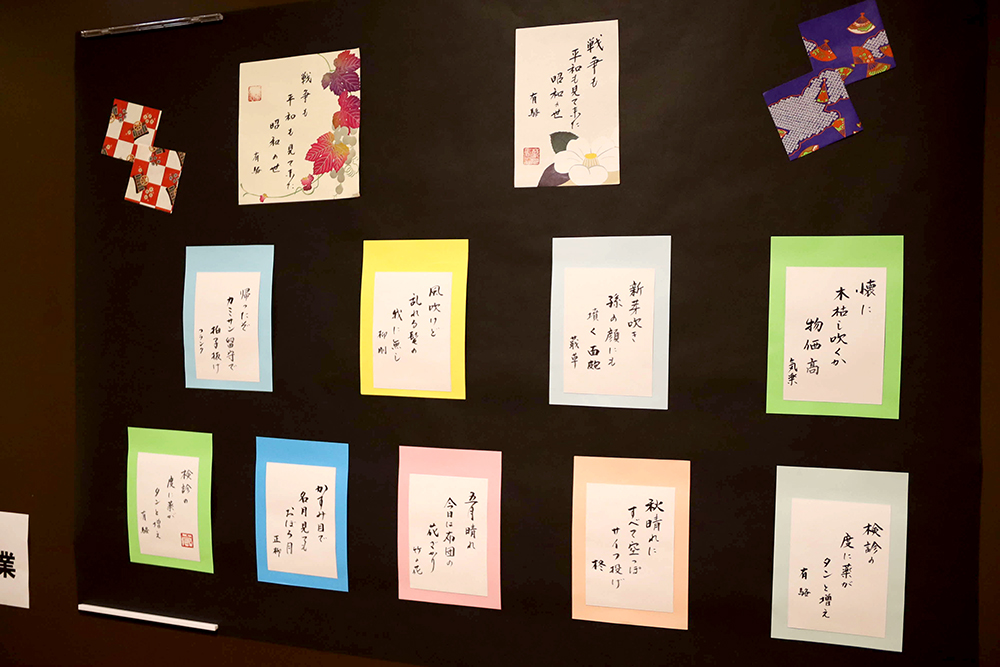 戦争も
平和も見て来た
昭和の世
有駱
戦争も
平和も見て来た
昭和の世
有駱
帰ったぞ
カミサン留守で
拍子抜け
フランク
風吹けど
乱れる髪の
我に無し
柳剛
新芽吹き
孫の顔にも
頂く面皰
萩草
懐に
木枯し吹くか
物価高
気楽
検診の
度に薬が
タンと増え
有駱
かすみ目で
名月見ても
おぼろ月
正柳
五月晴れ
今日は布団の
花ざかり
竹の花
秋晴れに
すべて空っぽ
サイフ投げ
柊
検診の
度に薬が
タンと増え
有駱
業